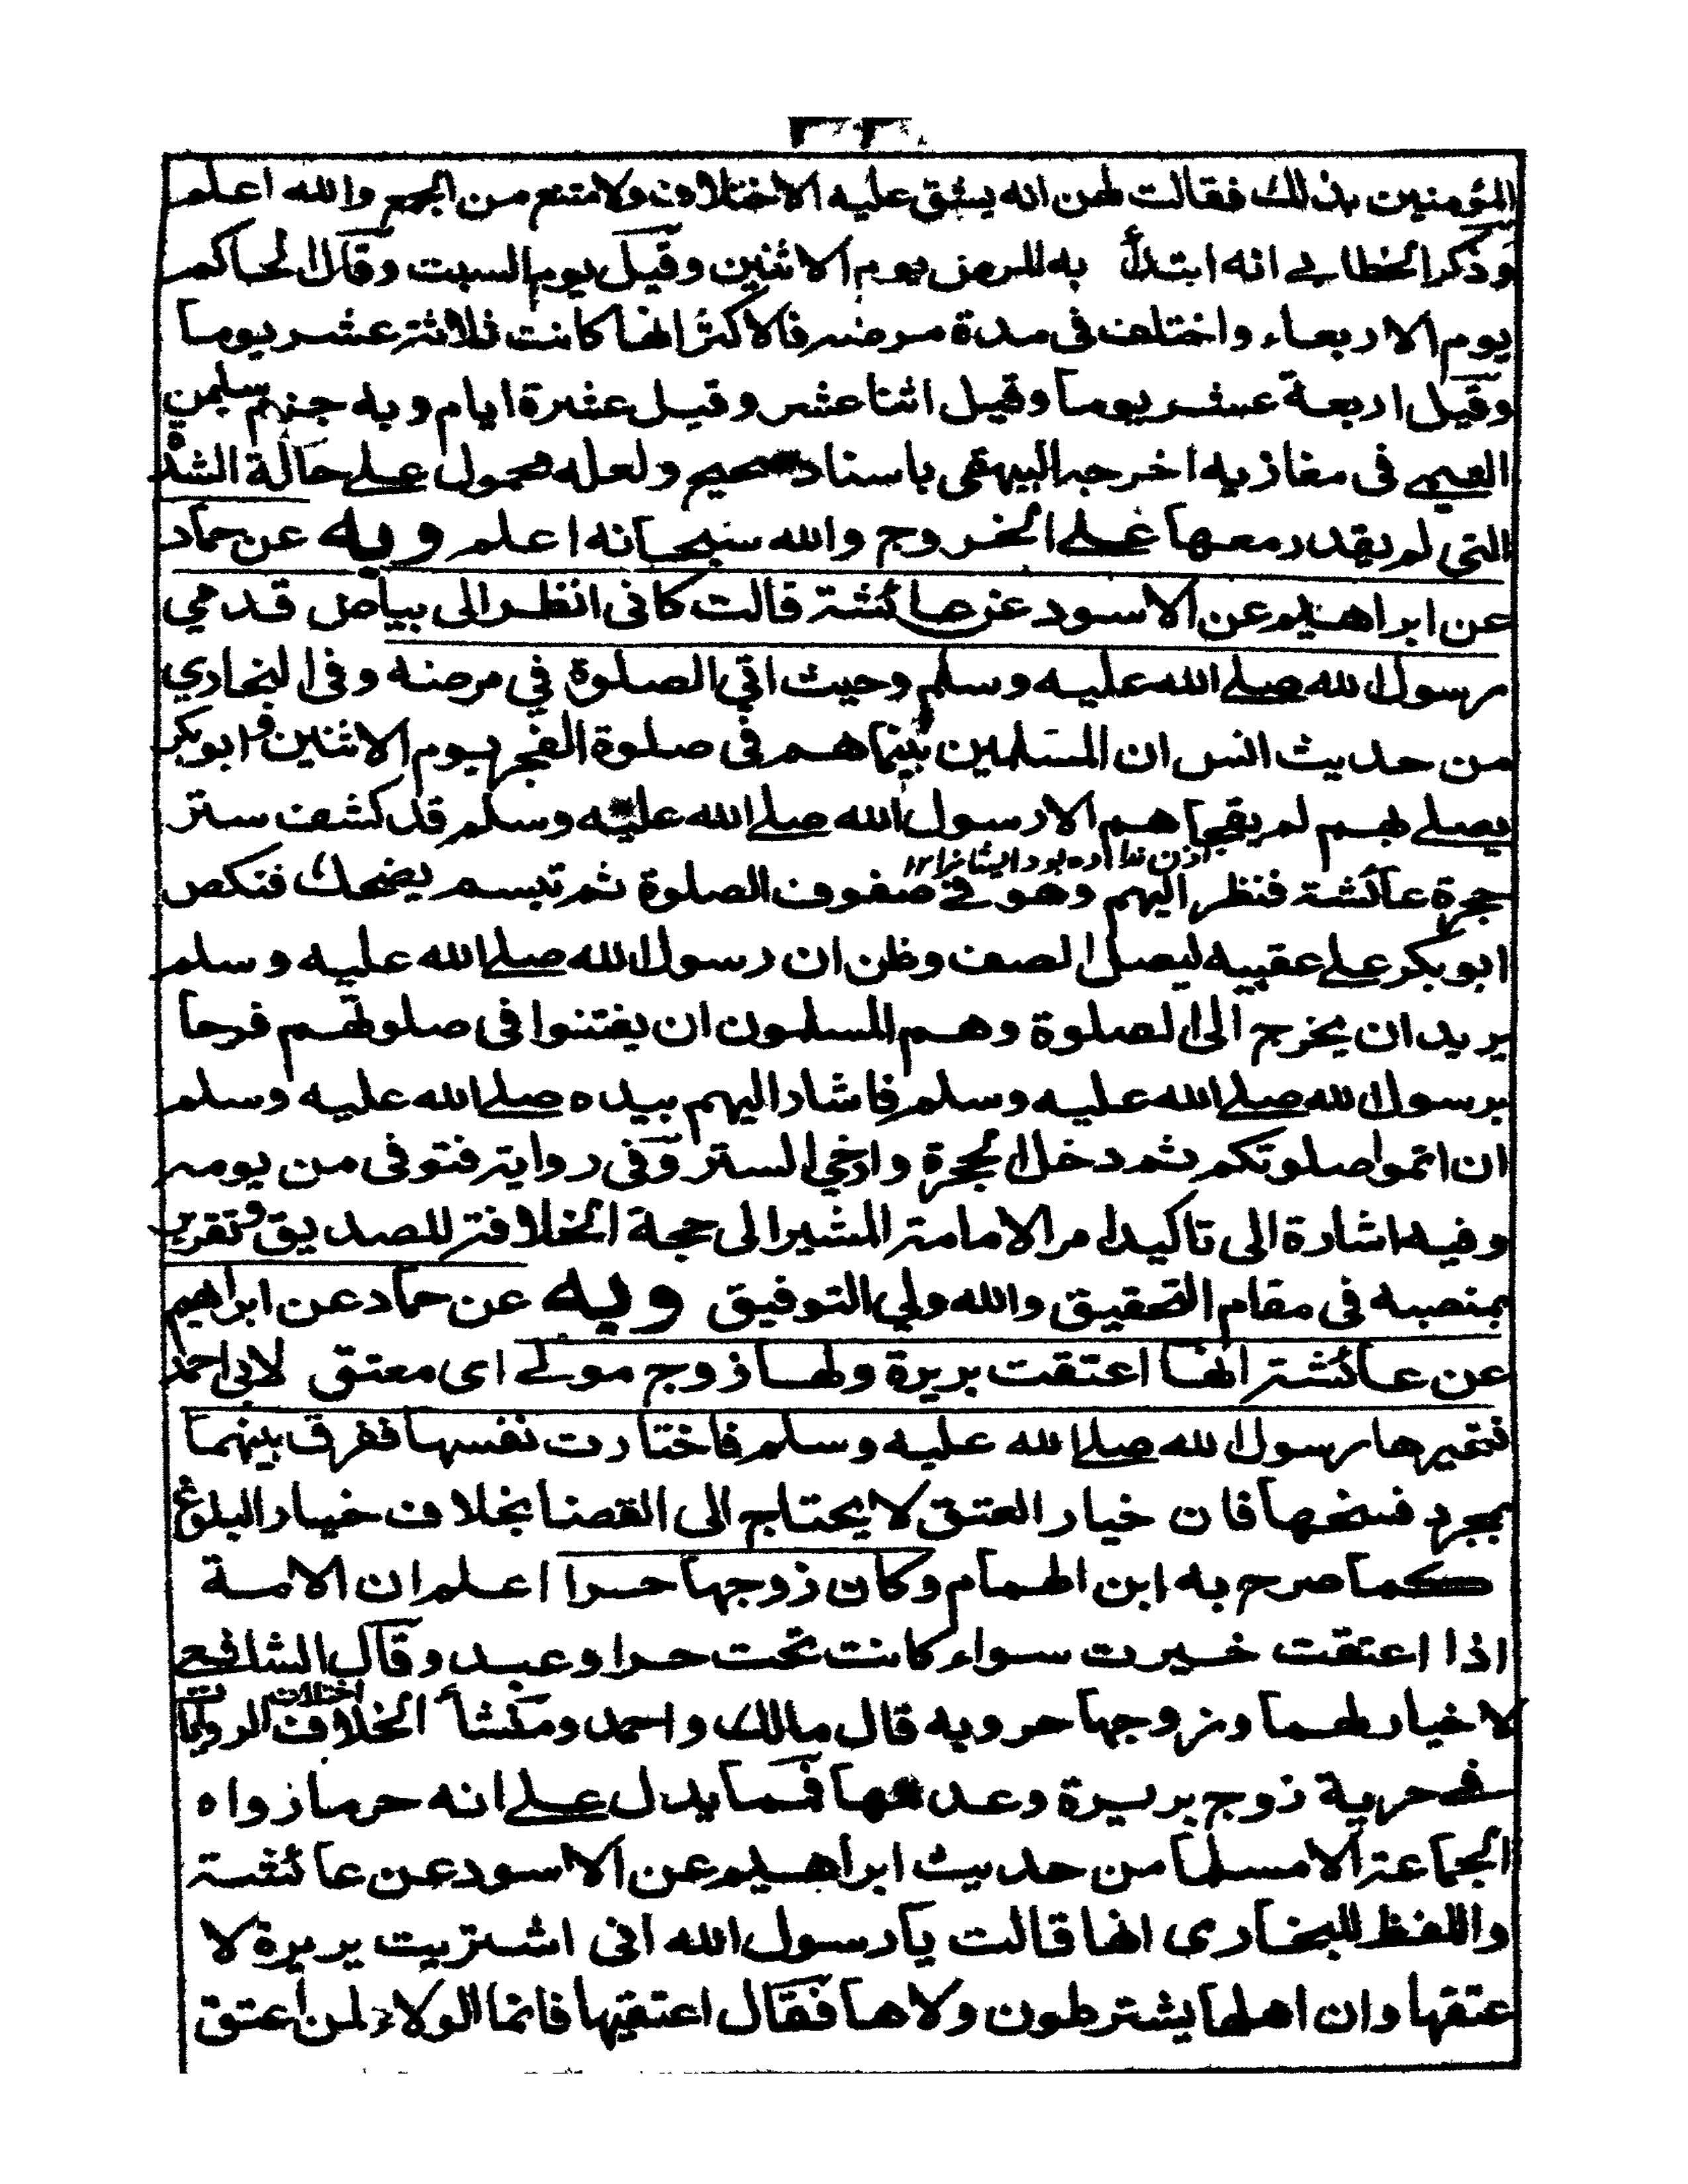 المؤمنين بذلك فقالت لهن انه يشق عليه الاختلاف ولا متنع من الجمع والله اعلم
وذكر الخطابي انه ابتدأ به المرض يوم الاثنين وقيل يوم السبت وقال الحاكم
يوم الاربعاء واختلف فى مدة مرضه فالاكثر انها كانت ثلاثة عشر يوما
وقيل اربعة عشر يوما وقيل اثنا عشر وقيل عشرة ايام وبه جزم سليمن
التيمي فى مغازيه اخرجه البيهقى باسناد صحيح ولعله محمول على حالة الشدة
التى لم يقدر معها على الخروج والله سبحانه اعلم وبه عن حماد
عن ابراهيم عن الاسود عن عائشة قالت كانى انظر الى بياض قدمي
رسول الله صلے الله عليه وسلم وحيث اتي الصلوة في مرضه وفى البخاري
من حديث انس ان المسلمين بينما هم فى صلوة الفجر يوم الاثنين وابو بكر
يصلے لهم لم يفجأ هم الا رسول الله صلے الله عليه وسلم قد كشف ستر
حجرة عائشة فنظر اليهم وهو فے صفوف الصلوة ثم تبسم يضحك فنكص
ابو بكر علے عقبيه ليصل الصف وظن ان رسول الله صلے الله عليه وسلم
يريد ان يخرج الى الصلوة وهم المسلمون ان يفتنوا فى صلوتهم فرحا
برسول الله صلے الله عليه وسلم فاشار اليهم بيده صلے الله عليه وسلم
ان اتموا صلوتكم ثم دخل الحجرة وارخي الستر وفى رواية فتوفى من يومه
وفيه اشارة الى تاكيد امر الامامة المشير الى حجة الخلافة للصديق وتقريب
بمنصبه فى مقام التحقيق والله ولي التوفيق وبه عن حماد عن ابراهيم
عن عائشة انها اعتقت بريرة ولها زوج مولے اى معتق لابى احمد
فخيرها رسول الله صلے الله عليه وسلم فاختارت نفسها ففرق بينهما
بمجرد فسخها فان خيار العتق لا يحتاج الى القضا بخلاف خيار البلوغ
كما صرح به ابن الهمام وكان زوجها حرا اعلم ان الامة
اذا اعتقت خيرت سواء كانت تحت حر او عبد وقال الشافعے
لا خيار لهما وزوجها حر وبه قال مالك واحمد ومنشأ الخلاف اختلاف الروايات
فے حرية زوج بريرة وعدمها فما يدل علے انه حر ما رواه
الجماعة الا مسلما من حديث ابراهيم عن الاسود عن عائشة
واللفظ للبخارى انها قالت يا رسول الله انى اشتريت بريرة لا
عتقها وان اهلها يشترطون ولاها فقال اعتقيها فانما الولاء لمن اعتق